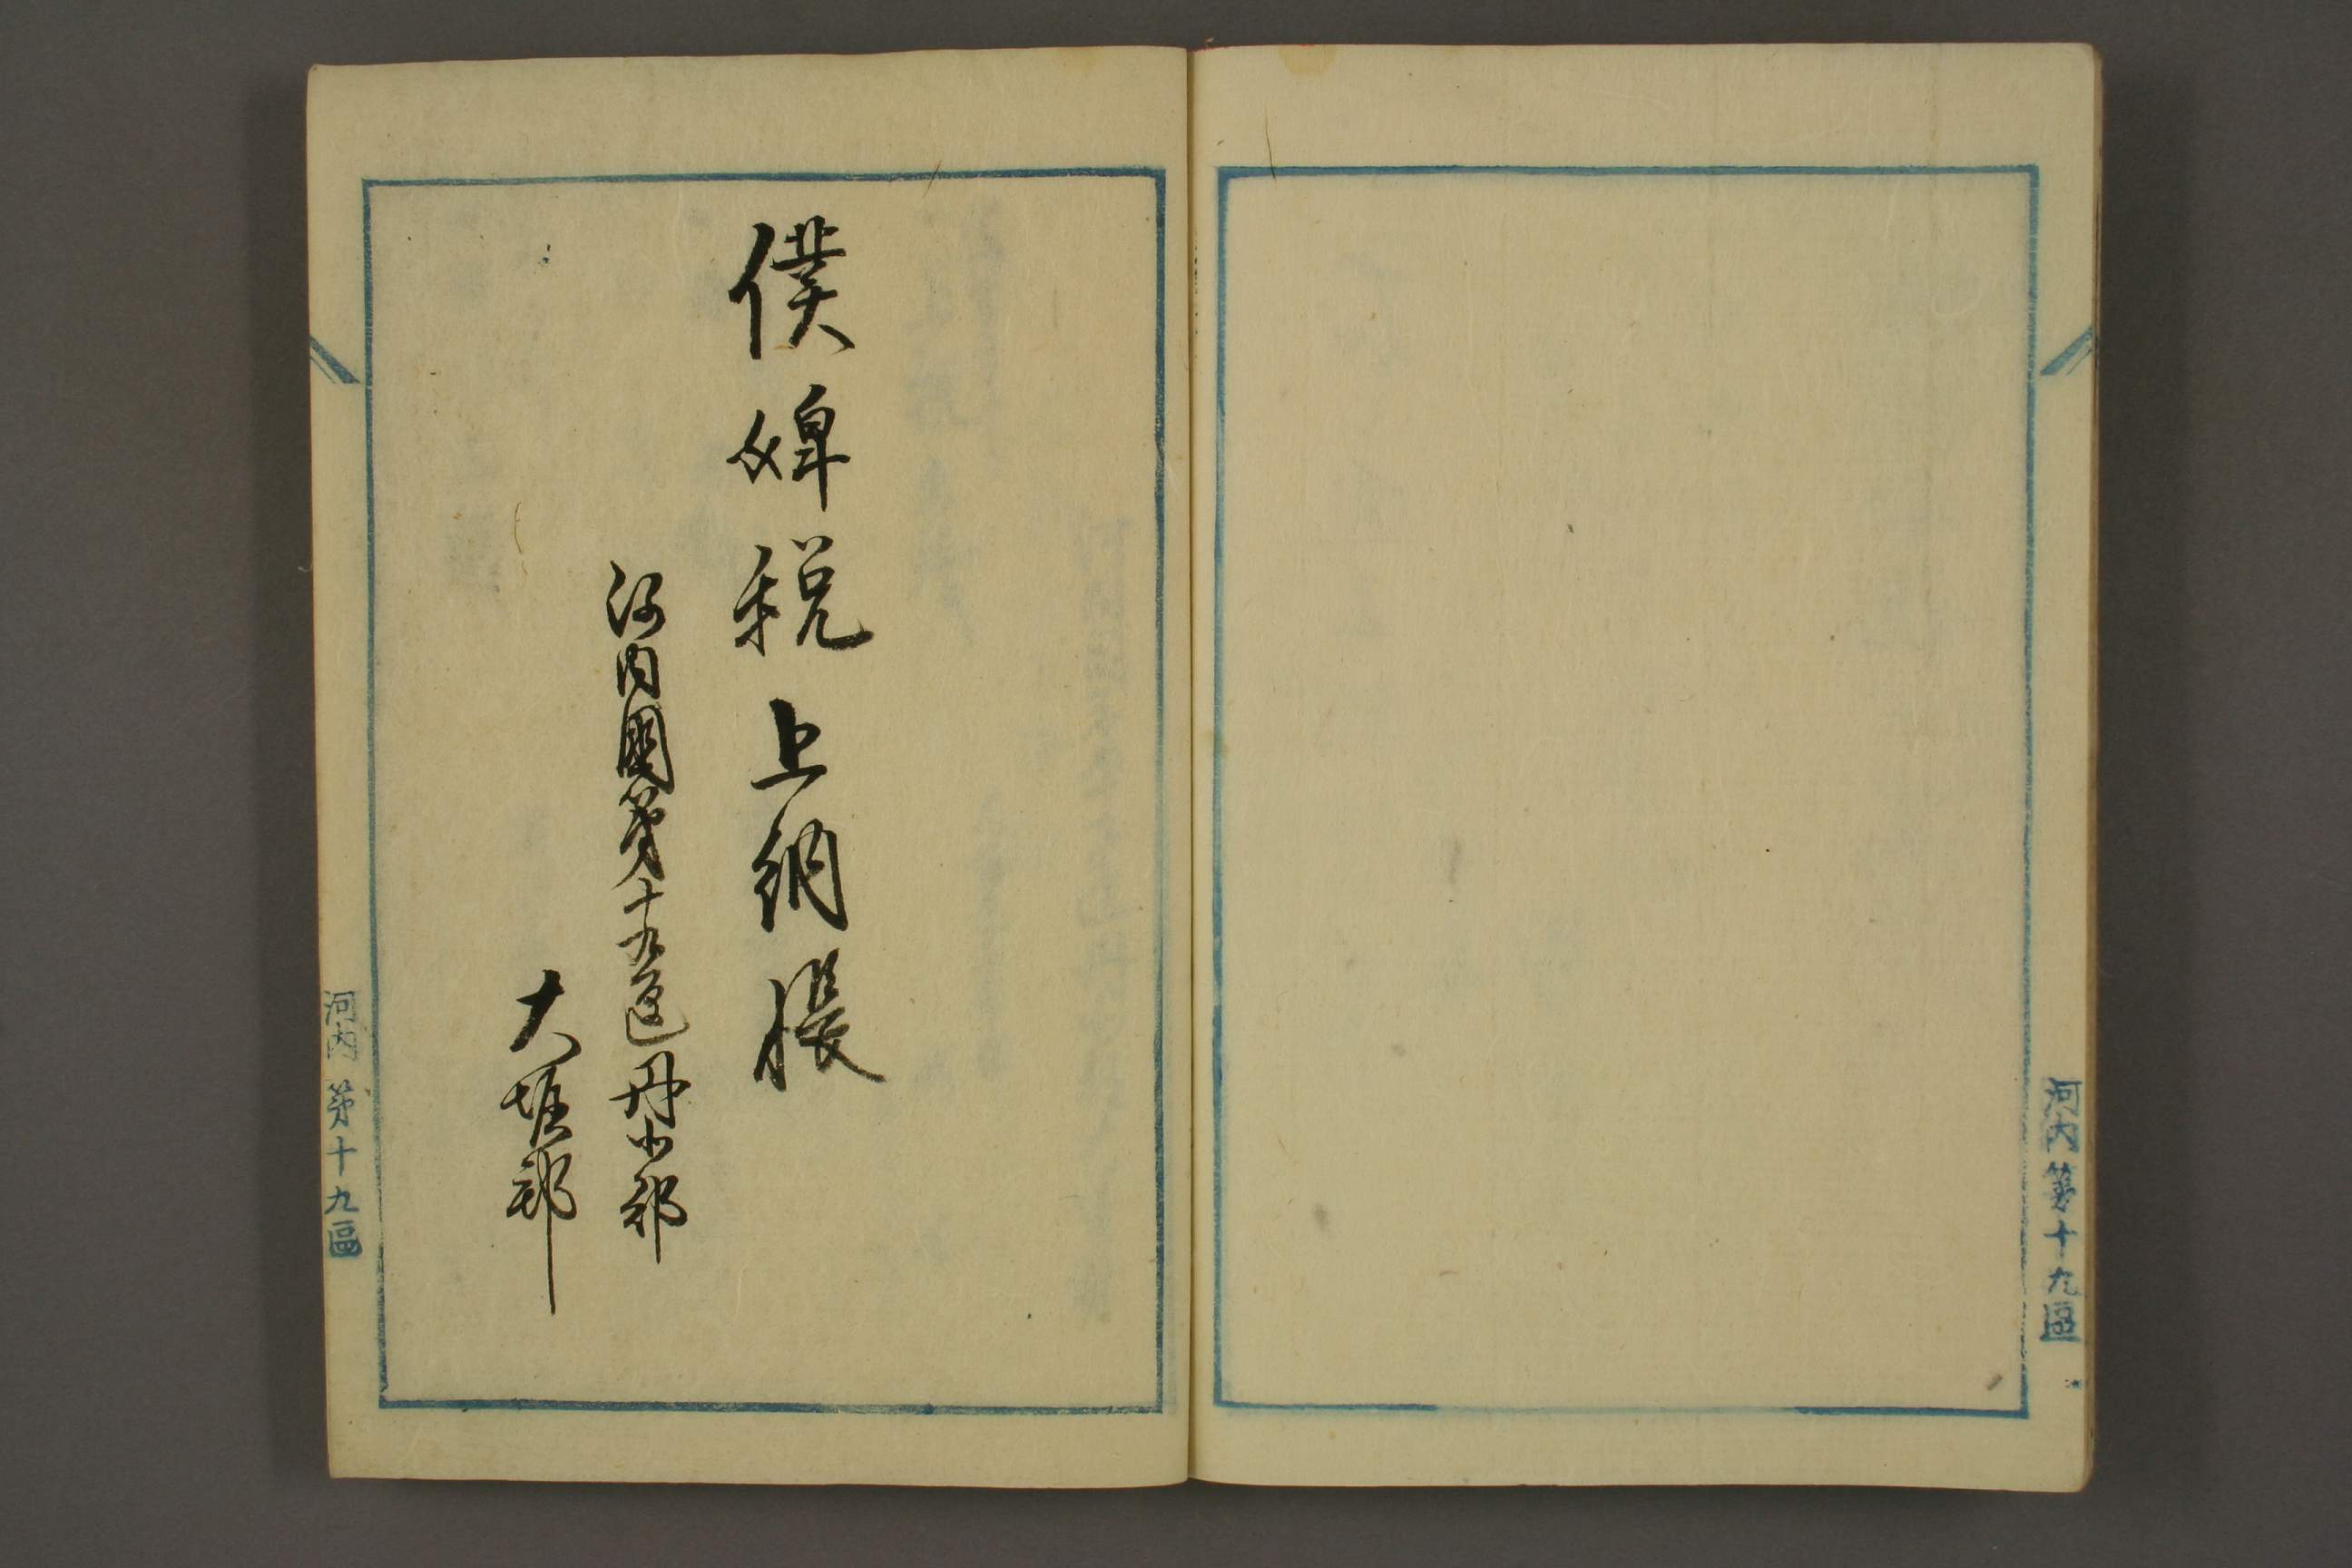 河内第十九區
僕婢税上納帳
河内國第十九區丹北郡
大堀邨
河内第十九區